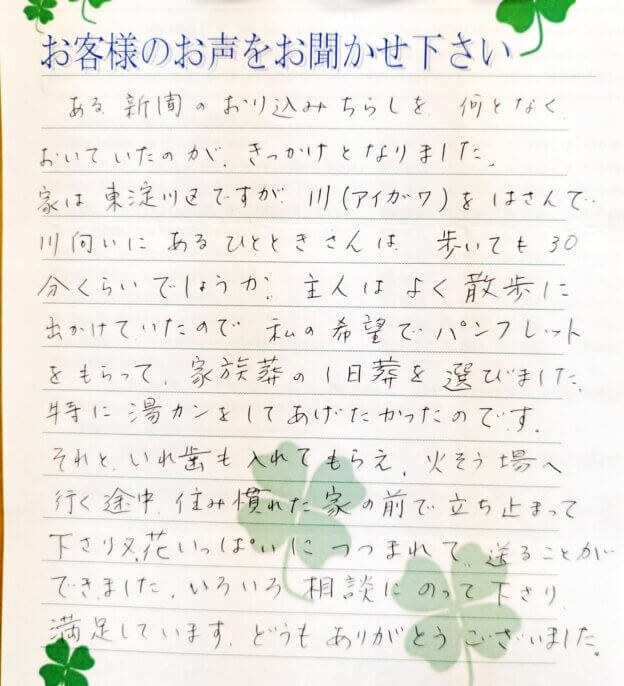 お客様のお声をお聞かせ下さい
ある新聞のおり込みちらしを 何となく
おいていたのが、きっかけとなりました。
家は東淀川区ですが 川(アイガワ)をはさんで
川向いにあるひとときさんは 歩いても30
分くらいでしょうか。主人はよく散歩に
出かけていたので 私の希望でパンフレット
をもらって、家族葬の1日葬を選びました。
特に湯カンをしてあげたかったのです。
それと、いれ歯も入れてもらえ、火そう場へ
行く途中、住み慣れた家の前で立ち止まって
下さり又、花いっぱいにつつまれて、送ることが
できました。いろいろ相談にのって下さり、
満足しています。どうもありがとうございました。